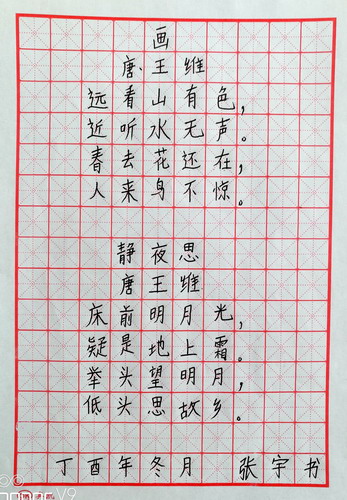 画
唐、王维
远看山有色，
近听水无声。
春去花还在，
人来鸟不惊。
静夜思
唐王维
床前明月光，
疑是地上霜。
举头望明月，
低头思故乡。
丁酉年冬月 张宇书